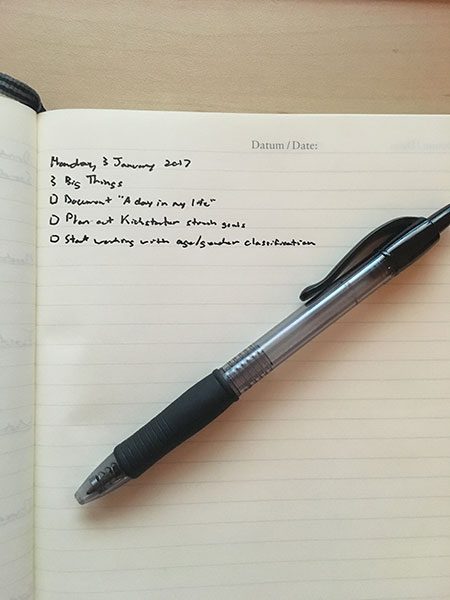 Datum / Date:
Monday, 3 January 2017
3 Big Things
Document "A day in my life"
Plan out Kickstarter stretch goals
Start working with age/gender classification